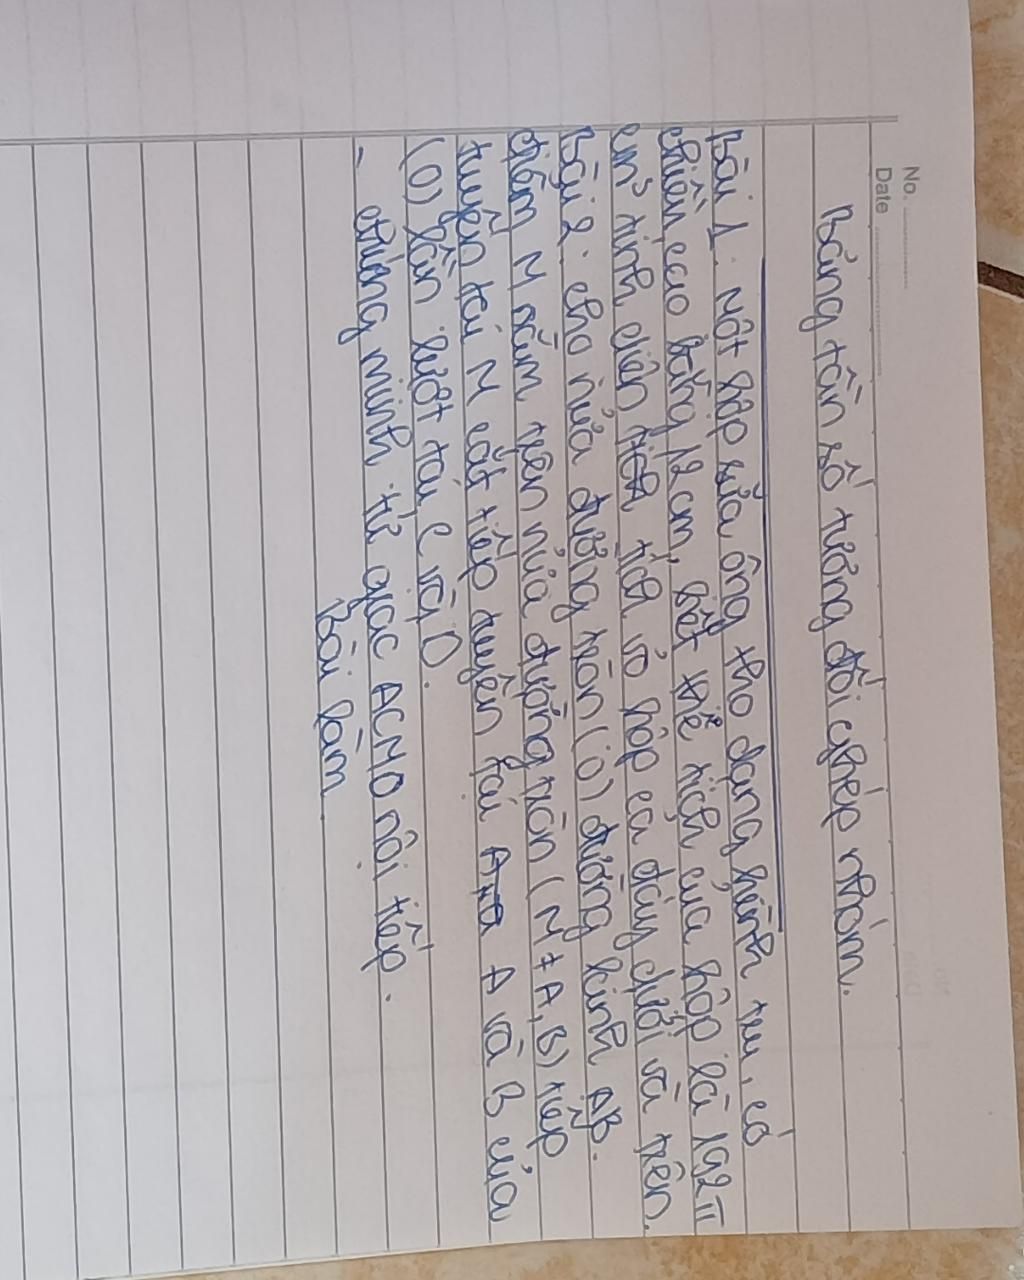 No.
Date
Bảng tần số tương đối ghép nhóm.
Bài 1: Một hộp sữa ông thọ dạng hình trụ, có
chiều cao bằng 12cm, biết thể tích của hộp là 192π
cm³ tính diện tích vỏ hộp cả đáy dưới và trên.
Bài 2: cho nửa đường tròn (O) đường kính AB.
điểm M nằm trên nửa đường tròn (M ≠ A, B) tiếp
tuyến tại M cắt tiếp tuyến tại A và B của
(O) lần lượt tại C và D.
- chứng minh tứ giác ACMO nội tiếp.
Bài làm